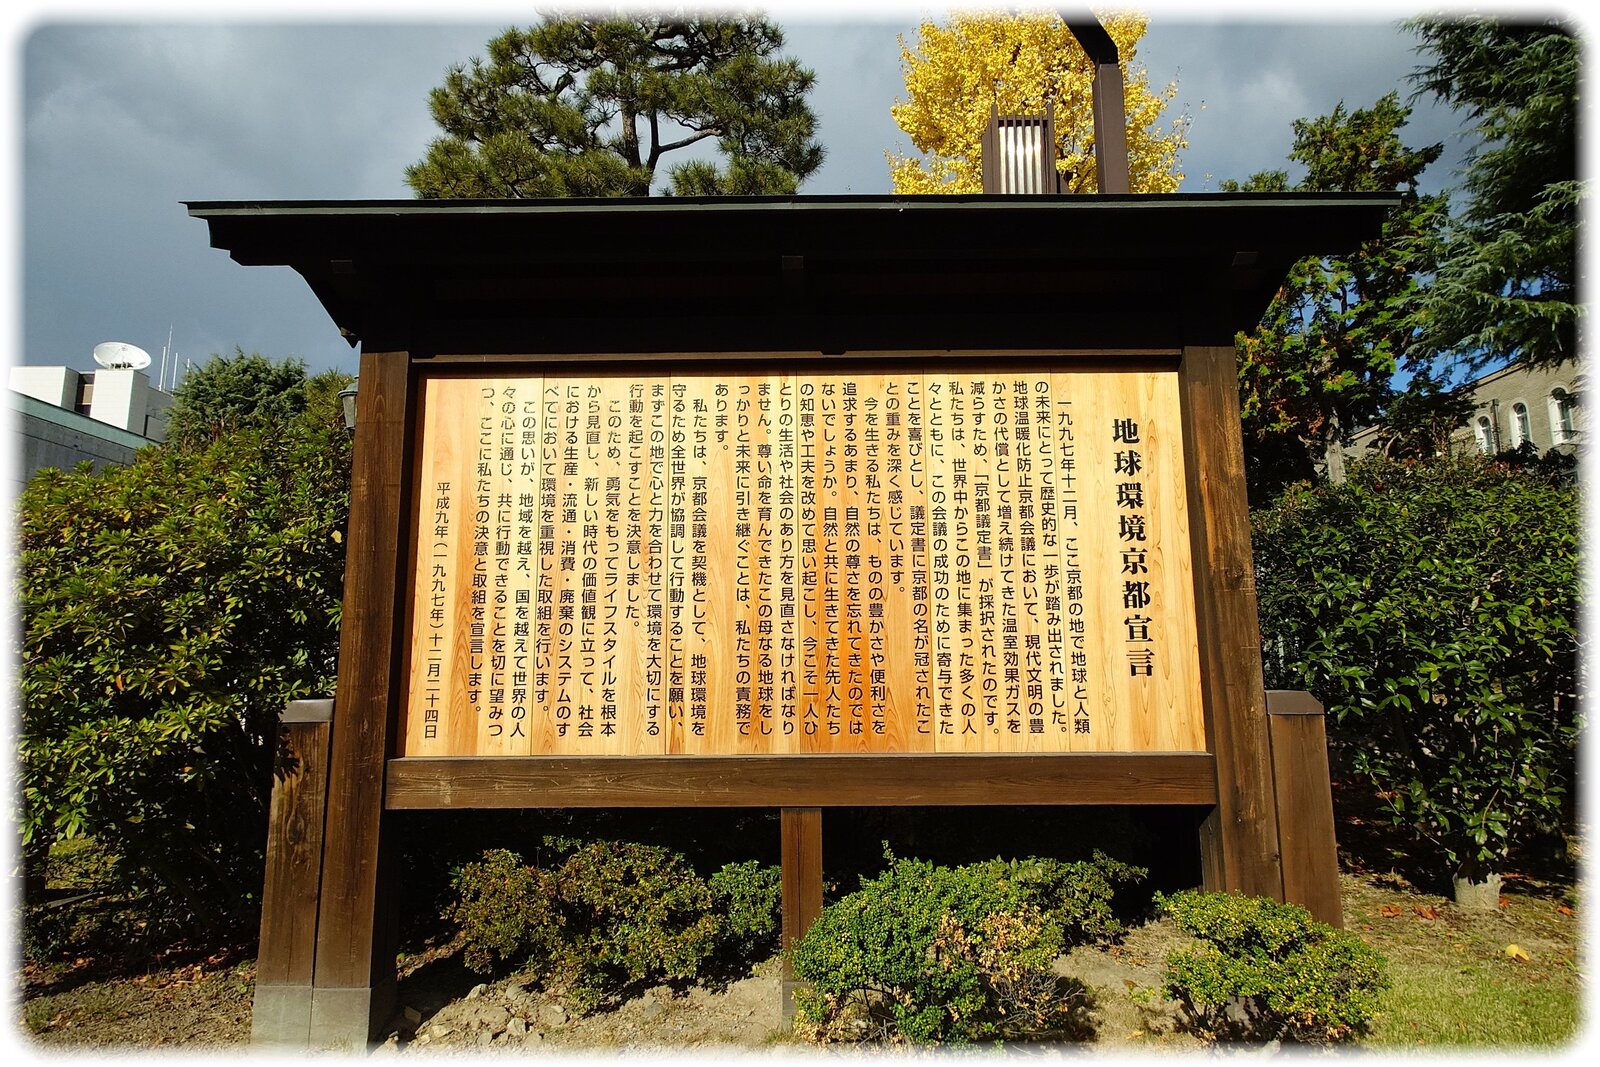 地球環境京都宣言
一九九七年十二月、ここ京都の地で地球と人類
の未来にとって歴史的な一歩が踏み出されました。
地球温暖化防止京都会議において、現代文明の豊
かさの代償として増え続けてきた温室効果ガスを
減らすため、「京都議定書」が採択されたのです。
私たちは、世界中からこの地に集まった多くの人
々とともに、この会議の成功のために寄与できた
ことを喜びとし、議定書に京都の名が冠されたこ
との重みを深く感じています。
今を生きる私たちは、ものの豊かさや便利さを
追求するあまり、自然の尊さを忘れてきたのでは
ないでしょうか。自然と共に生きてきた先人たち
の知恵や工夫を改めて思い起こし、今こそ一人ひ
とりの生活や社会のあり方を見直さなければなり
ません。尊い命を育んできたこの母なる地球をし
っかりと未来に引き継ぐことは、私たちの責務で
あります。
私たちは、京都会議を契機として、地球環境を
守るため全世界が協調して行動することを願い、
まずこの地で心と力を合わせて環境を大切にする
行動を起こすことを決意しました。
このため、勇気をもってライフスタイルを根本
から見直し、新しい時代の価値観に立って、社会
における生産・流通・消費・廃棄のシステムのす
べてにおいて環境を重視した取組を行います。
この思いが、地域を越え、国を越えて世界の人
々の心に通じ、共に行動できることを切に望みつ
つ、ここに私たちの決意と取組を宣言します。
平成九年（一九九七年）十二月二十四日